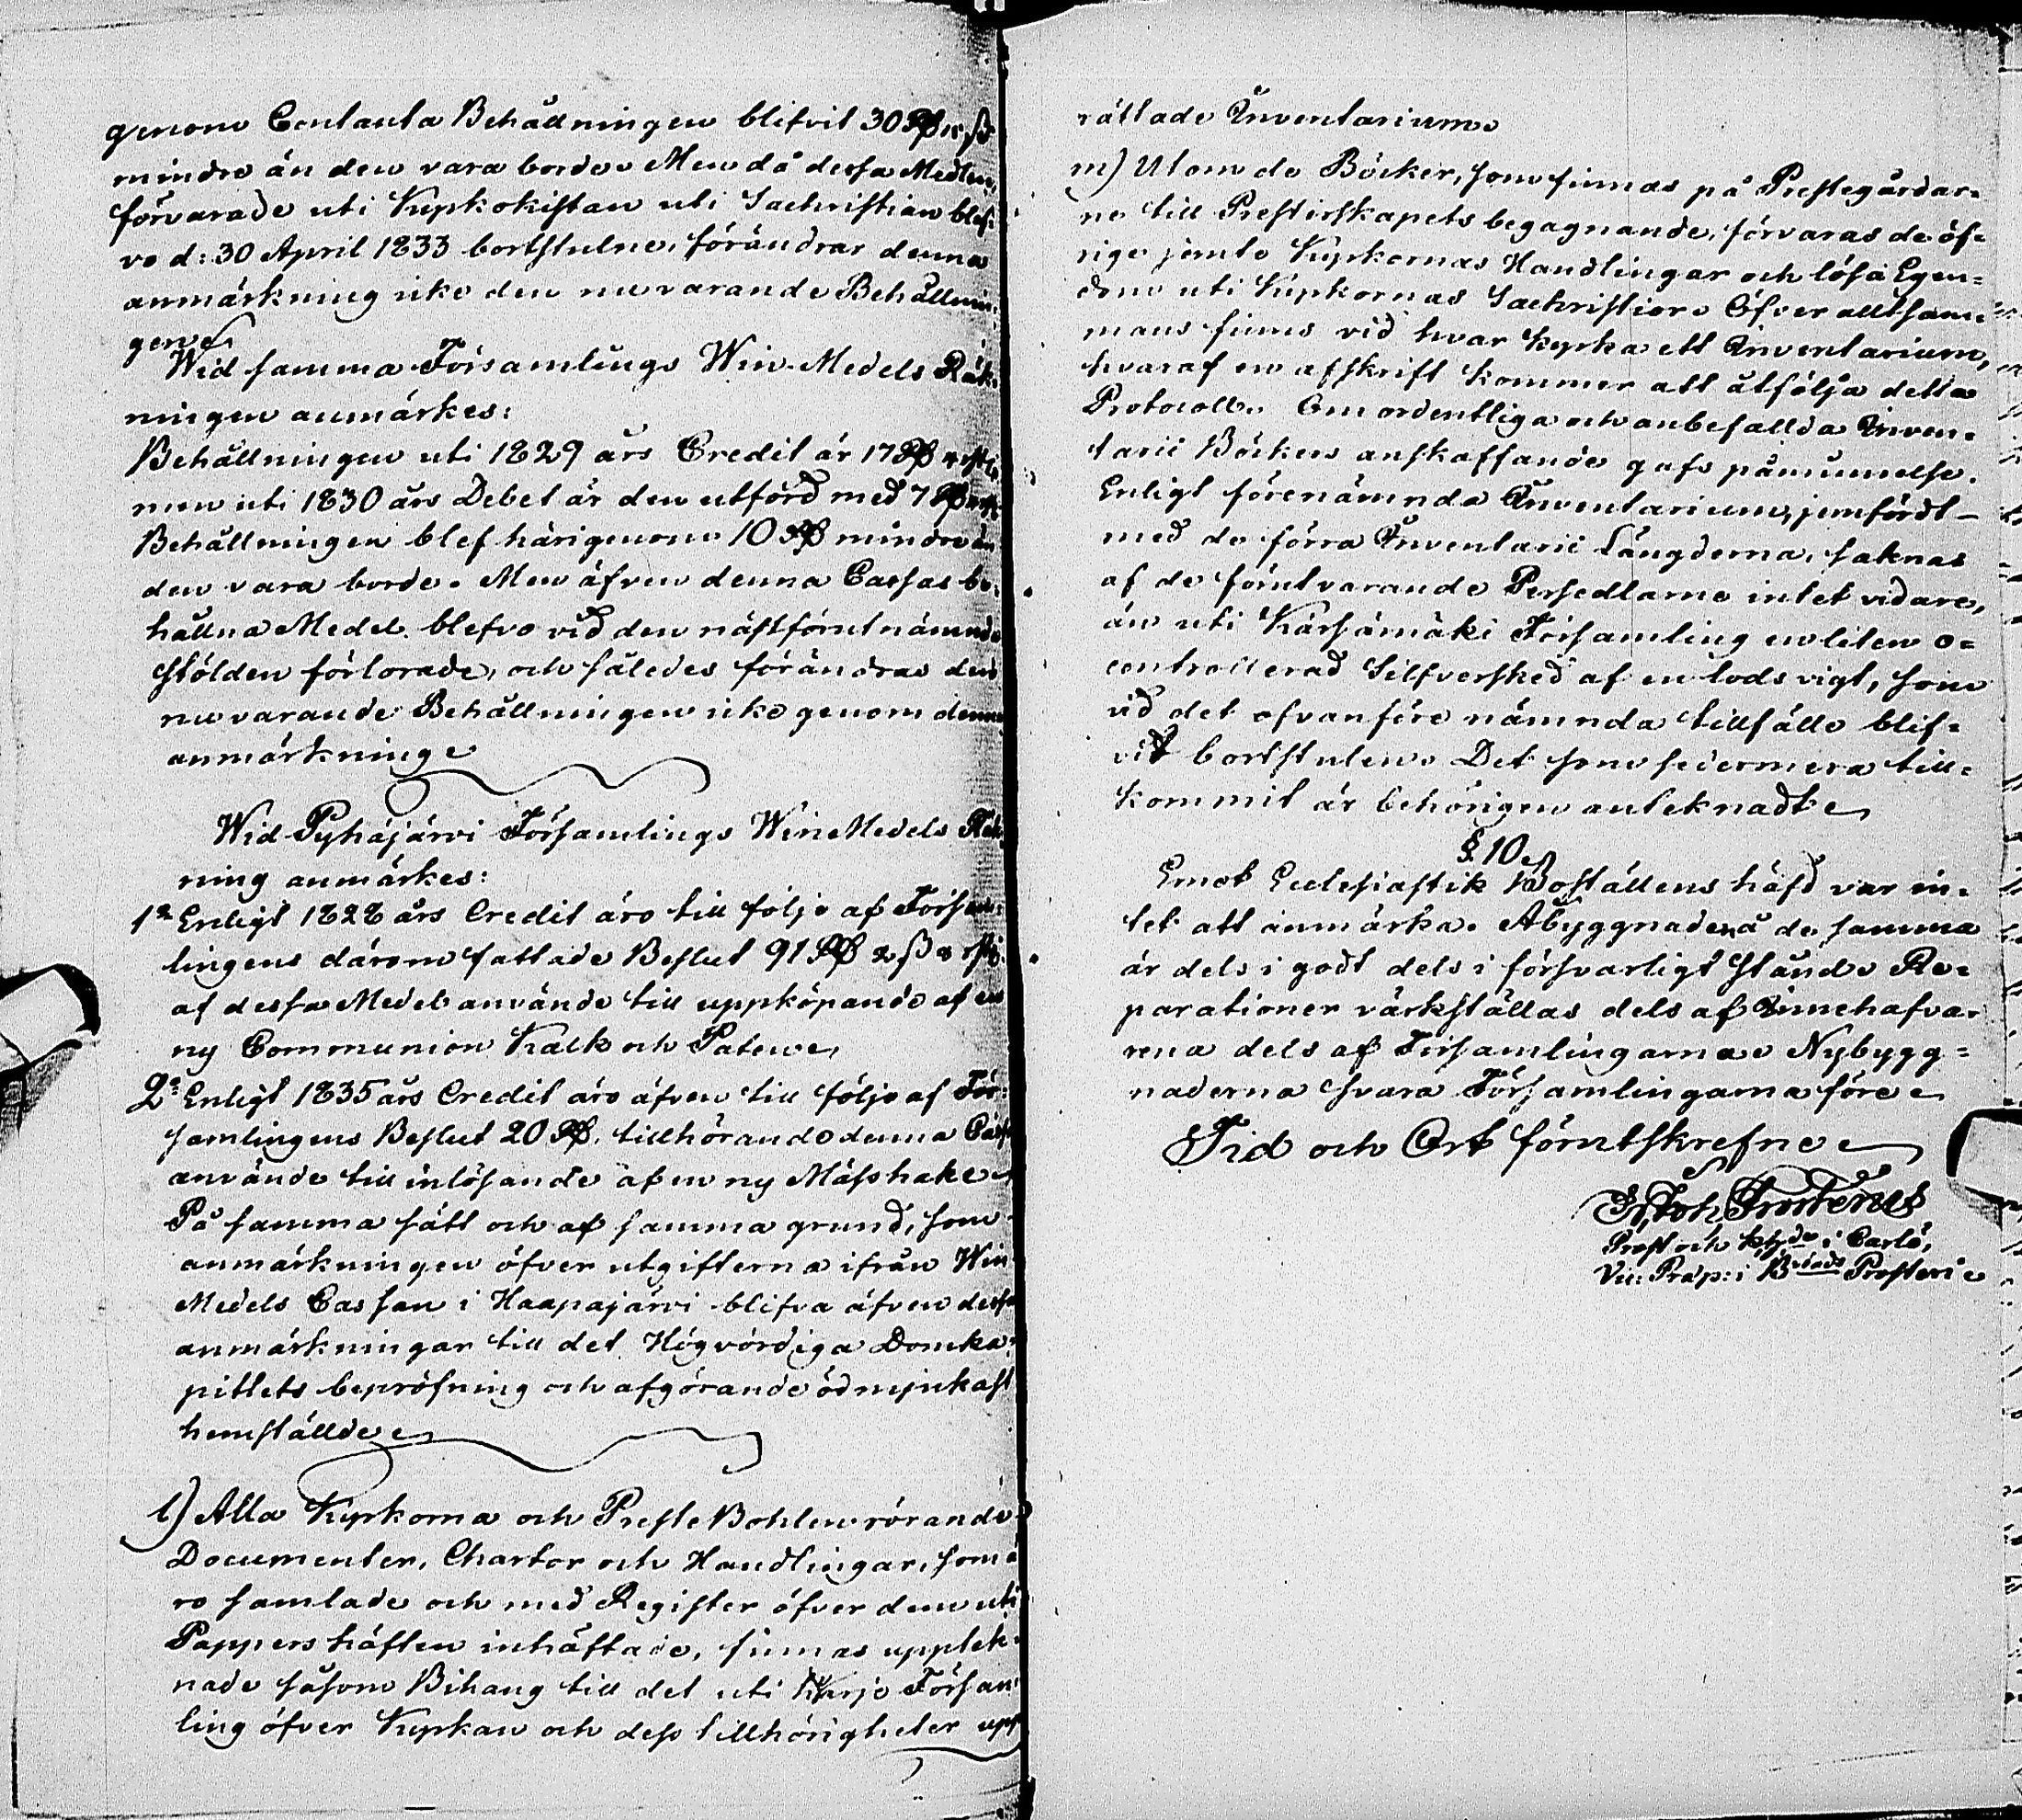 genom Contanta Behållningen blifvit 30
mindre än den vara borde. Men då dessa Medlen,
förvarade uti Kyrkokistan uti Sachristian blef-
vo d: 30 April 1833 bortstulne, förändrar denna
anmärkning icke den nuvarande Behållnin-
gen.
Wid samma Församlings Win-Medels Räk-
ningen anmärkes:
Behållningen uti 1829 års Credit är 17
men uti 1830 års Debet är den utförd med 7
Behållningen blef härigenom 10 mindre än
den vara borde. Men äfven denna Cassas be-
hållna Medel blefvo vid den nästförutnämnde
stölden förlorade, och således förändras den
nuvarande Behållningen icke genom denna
anmärkning.
Wid Pyhäjärvi Församlings WinMedels Räk-
ning anmärkes:
1º Enligt 1828 års Credit äro till följe af Försam-
lingens därom fattade Beslut 91
af dessa Medel använde till uppköpande af en
ny Communion Kalk och Paten.
2º Enligt 1835 års Credit äro äfven till följe af För-
samlingens Beslut 20 tillhörande denna Cassa
använde till inlösande af en ny Mässhake.
På samma sätt och af samma grund, som
anmärkningen öfver utgifterna ifrån Win
Medels Cassan i Haapajärvi blifva äfven dessa
anmärkningar till det Högvördiga Domka-
pitlets bepröfning och afgörande ödmjukast
hemställde.
l) Alla Kyrkorna och PresteBohlen rörande
Documenter, Chartor och Handlingar, som ä
ro samlade och med Register öfver dem uti
Pappers häften inhäftade, finnas upptek-
nade såsom Bihang till det uti hvarje Försam-
ling öfver Kyrkan och dess tillhörigheter upp
rättade Inventarium.
m) Utom de Böcker, som finnas på Prestegårdar-
ne till Presterskapets begagnande, förvaras de öf-
rige jemte Kyrkornas Handlingar och lösa Egen-
dom uti Kyrkornas Sachristior. Öfver alltsam-
mans finns vid hvar kyrka ett Inventarium,
hvaraf en afskrift kommer att åtfölja detta
Protocoll. Om ordentliga och anbefallda Inven-
tarii Böckers anskaffande gafs påminnelse.
Enligt förenämnda Inventarium, jemfördt
med de förra Inventarii Längderna, saknas
af de förutvarande Persedlarne intet vidare,
än uti Kärsämäki Församling en liten o-
controllerad Silfversked af en lods vigt, som
vid det ofvanföre nämnda tillfälle blif-
vit bortstulen. Det som sedermera till-
kommit är behörigen anteknadt.
§. 10.
Emot Ecclesiastik Boställens häfd var in-
tet att anmärka. Åbyggnaden å de samma
är dels i godt dels i försvarligt stånd. Re-
parationer värkställas dels af Innehafva-
rena dels af Församlingarna. Nybygg-
naderna svara Församlingarna före.
Tid och Ort förutskrefne.
Joh Frosterus
Prost och khde i Carlö,
Vic: Præp: i Prosteri